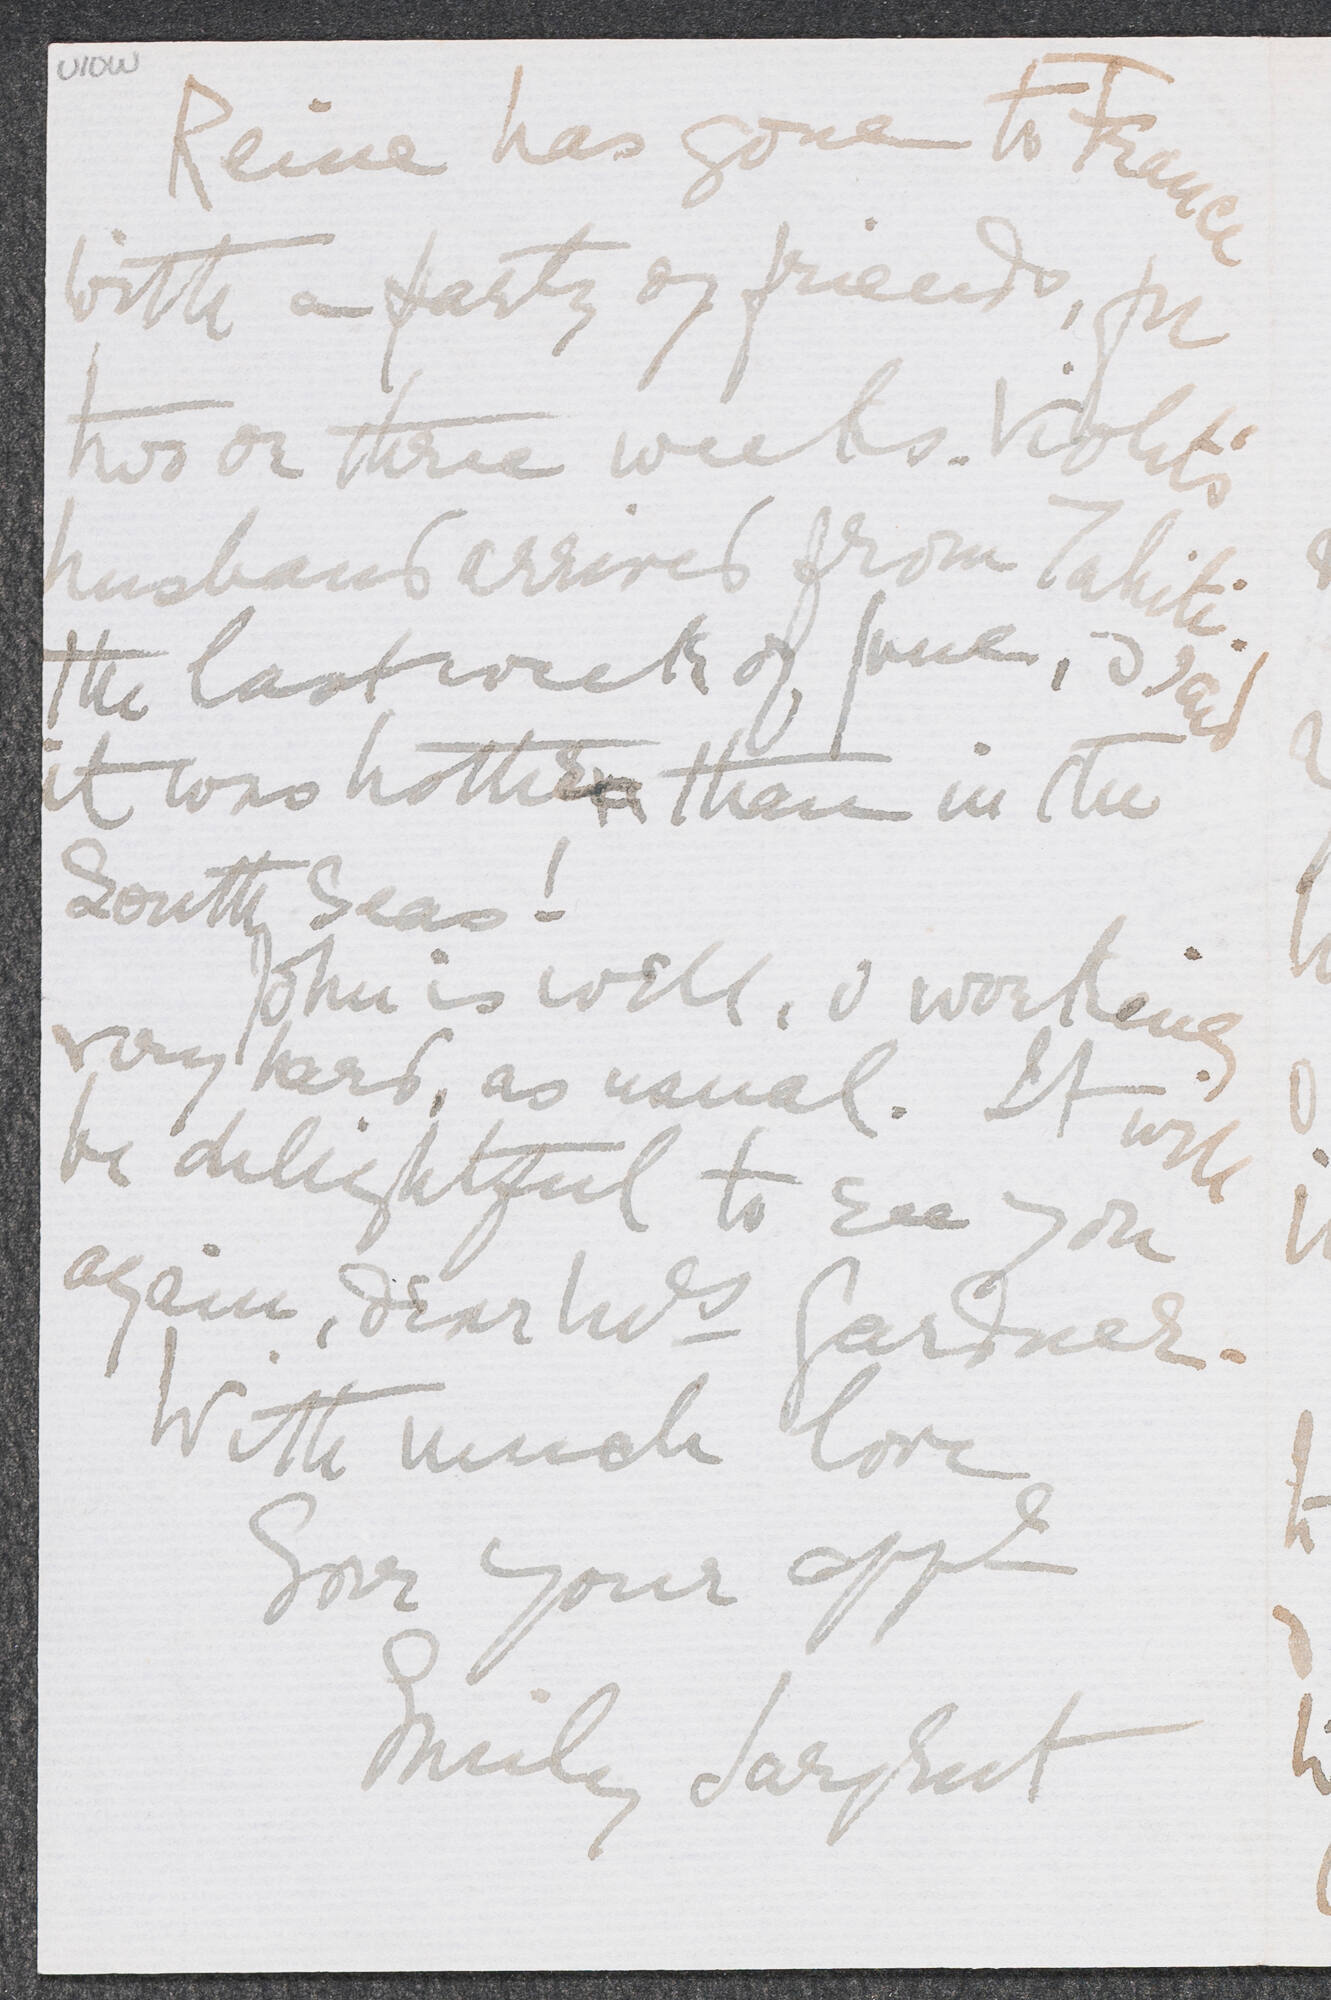 Reine has gone to France
with a party of friends, for
two or three weeks. Violet's
husband arrived from Tahiti
the last week of June, & said
it was hotter than in the
South Seas!
John is well, & working
very hard, as usual. It will
be delightful to see you
again, dear Mrs Gardner.
With much love
Ever your affte
Emily Sargent